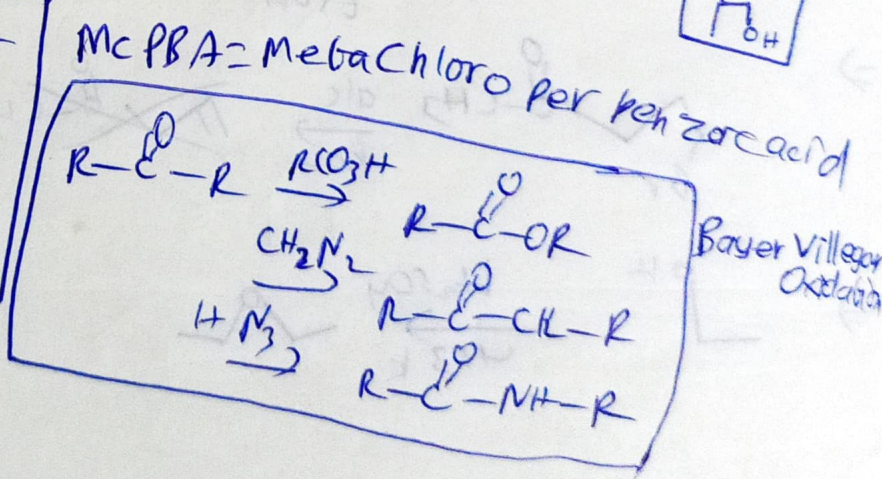 OH
McPBA = MetaChloro Per benzoic acid
R-C(=O)-R RCO3H R-C(=O)-OR
CH2N2 R-C(=O)-CH-R
HN3 R-C(=O)-NH-R
Bayer Villegar
Oxidation